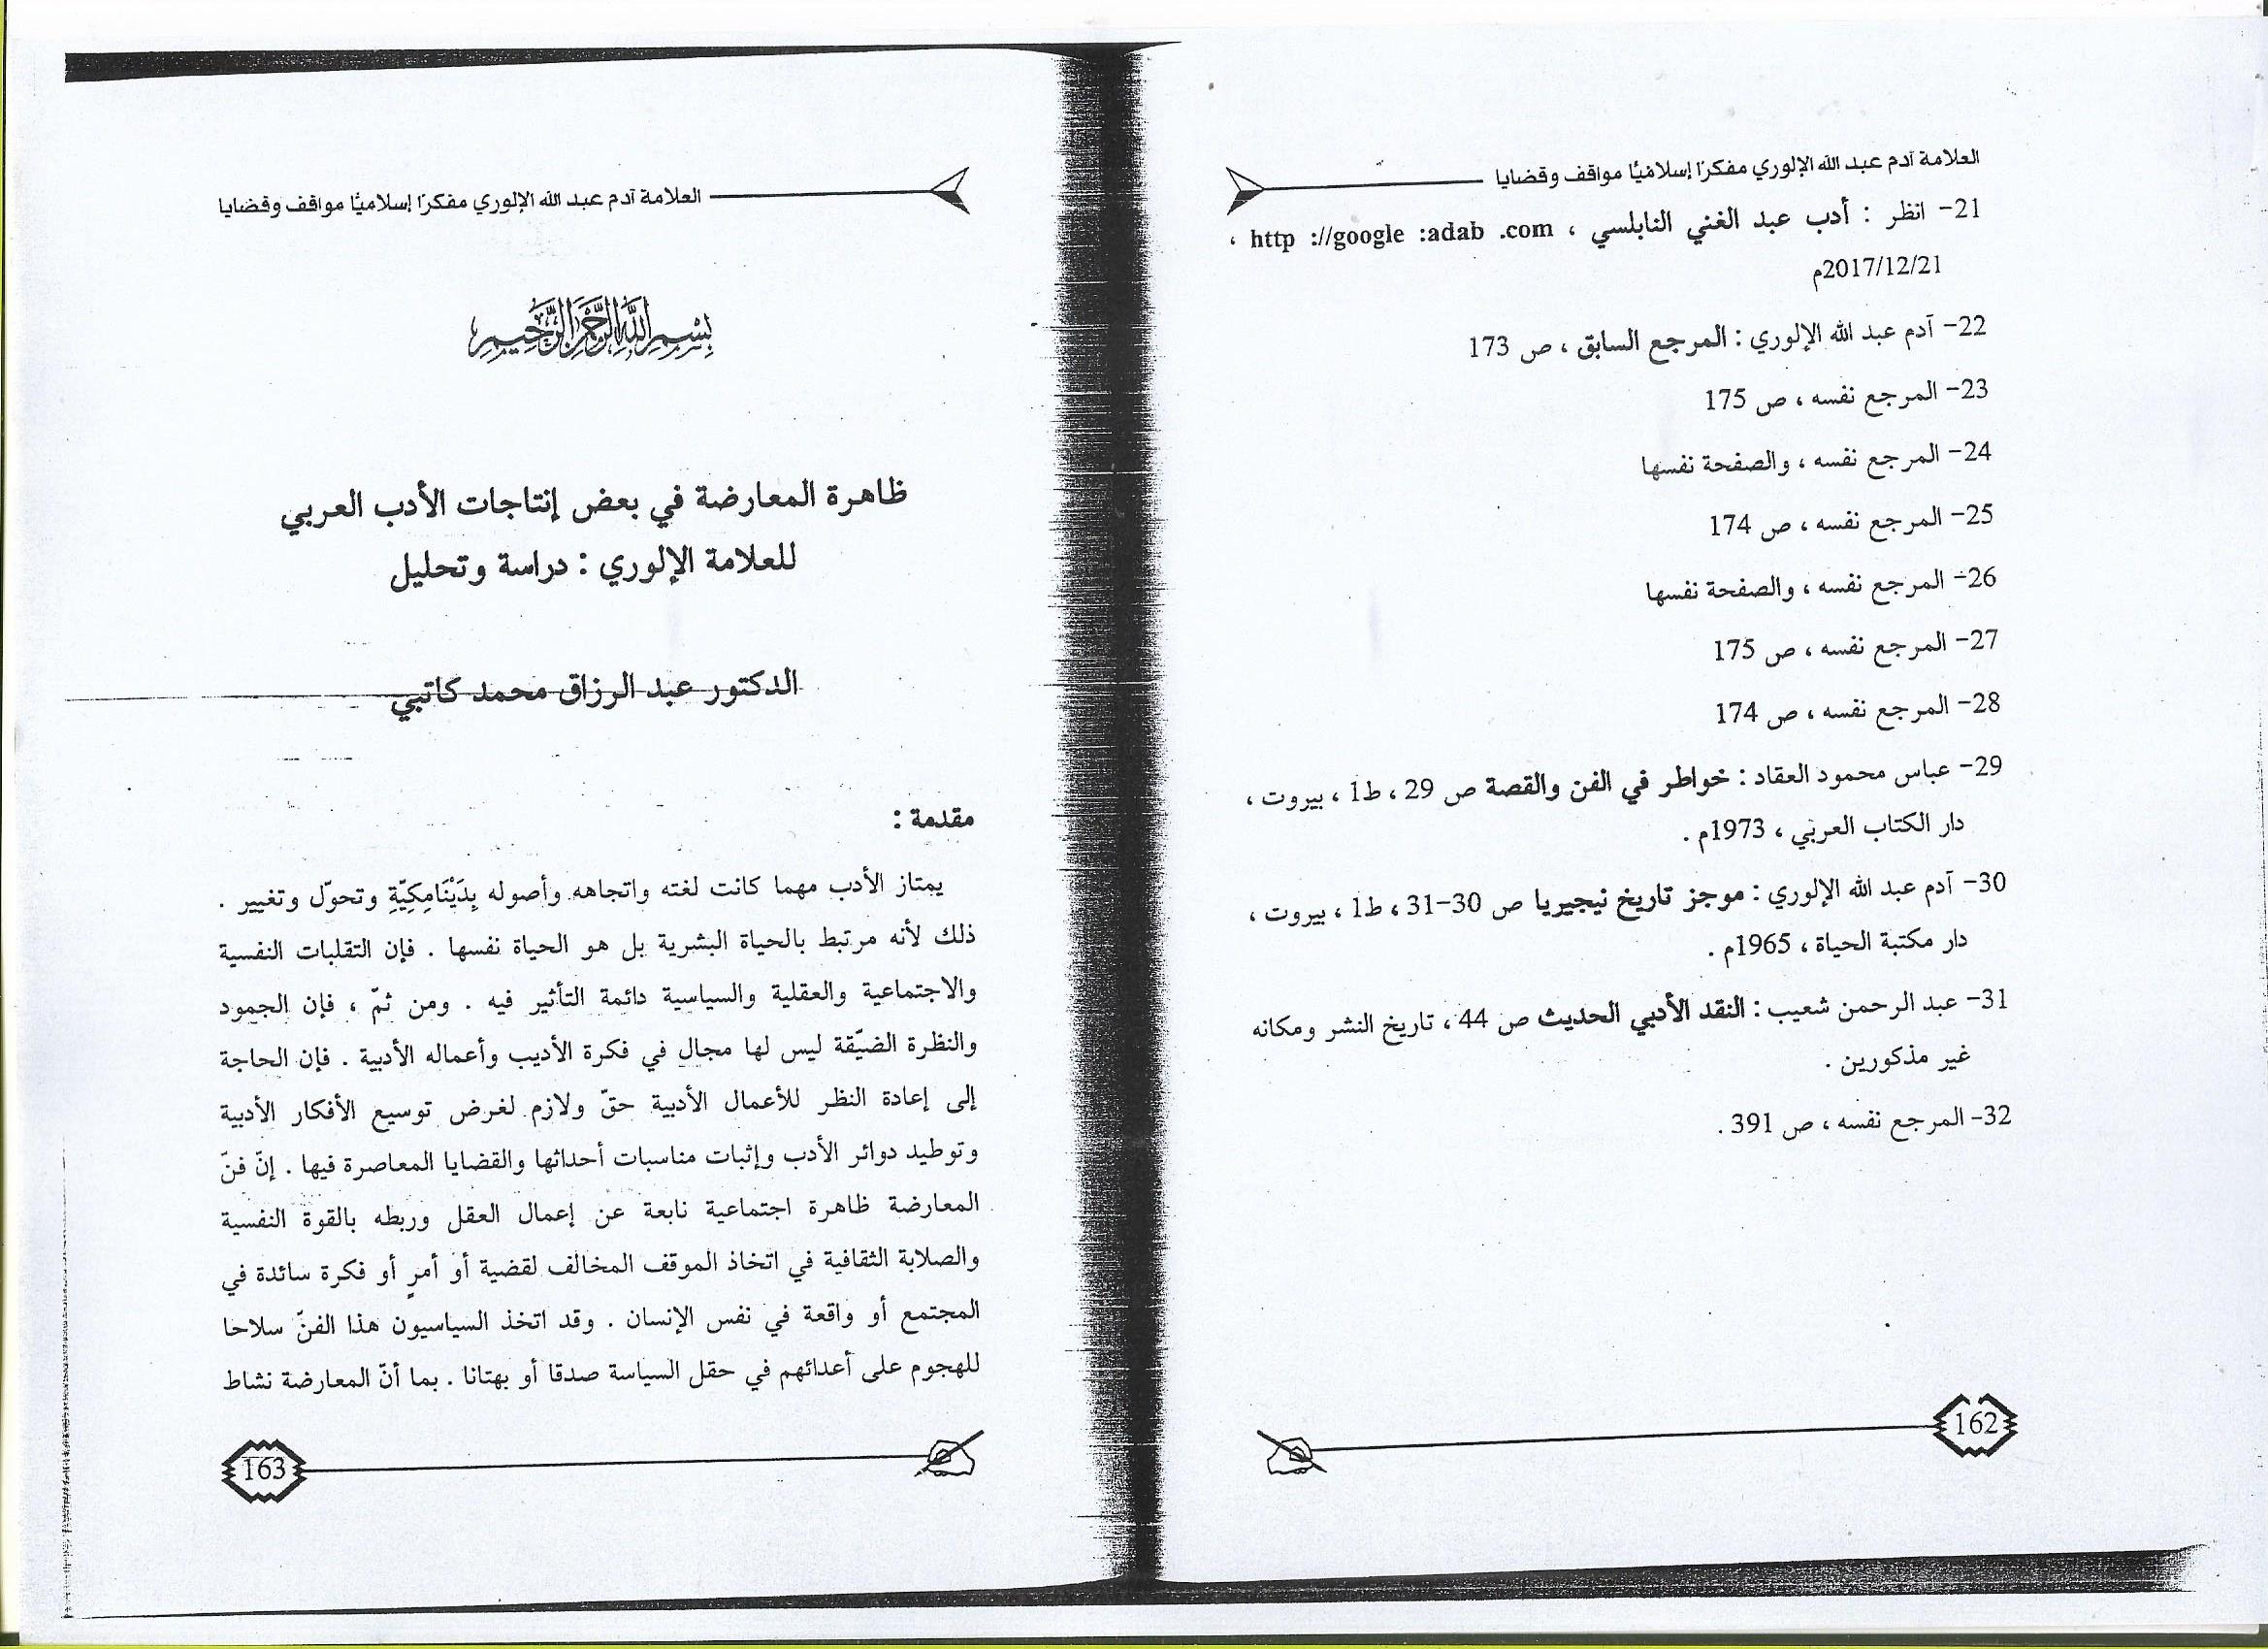 العلامة آدم عبد الله الإلوري مفكرًا إسلاميًا مواقف وقضايا
21- انظر : أدب عبد الغني النابلسي ، http ://google :adab .com ،
2017/12/21م
22- آدم عبد الله الإلوري : المرجع السابق ، ص 173
23- المرجع نفسه ، ص 175
24- المرجع نفسه ، والصفحة نفسها
25- المرجع نفسه ، ص 174
26- المرجع نفسه ، والصفحة نفسها
27- المرجع نفسه ، ص 175
28- المرجع نفسه ، ص 174
29- عباس محمود العقاد : خواطر في الفن والقصة ص 29 ، ط1 ، بيروت ،
دار الكتاب العربي ، 1973م .
30- آدم عبد الله الإلوري : موجز تاريخ نيجيريا ص 30-31 ، ط1 ، بيروت ،
دار مكتبة الحياة ، 1965م .
31- عبد الرحمن شعيب : النقد الأدبي الحديث ص 44 ، تاريخ النشر ومكانه
غير مذكورين .
32- المرجع نفسه ، ص 391 .
162
العلامة آدم عبد الله الإلوري مفكرًا إسلاميًا مواقف وقضايا
بسم الله الرحمن الرحيم
ظاهرة المعارضة في بعض إنتاجات الأدب العربي
للعلامة الإلوري : دراسة وتحليل
الدكتور عبد الرزاق محمد كاتبي
مقدمة :
يمتاز الأدب مهما كانت لغته واتجاهه وأصوله بِدَيْنَامِكِيّةِ وتحوّل وتغيير .
ذلك لأنه مرتبط بالحياة البشرية بل هو الحياة نفسها . فإن التقلبات النفسية
والاجتماعية والعقلية والسياسية دائمة التأثير فيه . ومن ثمّ ، فإن الجمود
والنظرة الضيّقة ليس لها مجال في فكرة الأديب وأعماله الأدبية . فإن الحاجة
إلى إعادة النظر للأعمال الأدبية حقّ ولازم لغرض توسيع الأفكار الأدبية
وتوطيد دوائر الأدب وإثبات مناسبات أحداثها والقضايا المعاصرة فيها . إنّ فنّ
المعارضة ظاهرة اجتماعية نابعة عن إعمال العقل وربطه بالقوة النفسية
والصلابة الثقافية في اتخاذ الموقف المخالف لقضية أو أمرٍ أو فكرة سائدة في
المجتمع أو واقعة في نفس الإنسان . وقد اتخذ السياسيون هذا الفنّ سلاحا
للهجوم على أعدائهم في حقل السياسة صدقا أو بهتانا . بما أنّ المعارضة نشاط
163